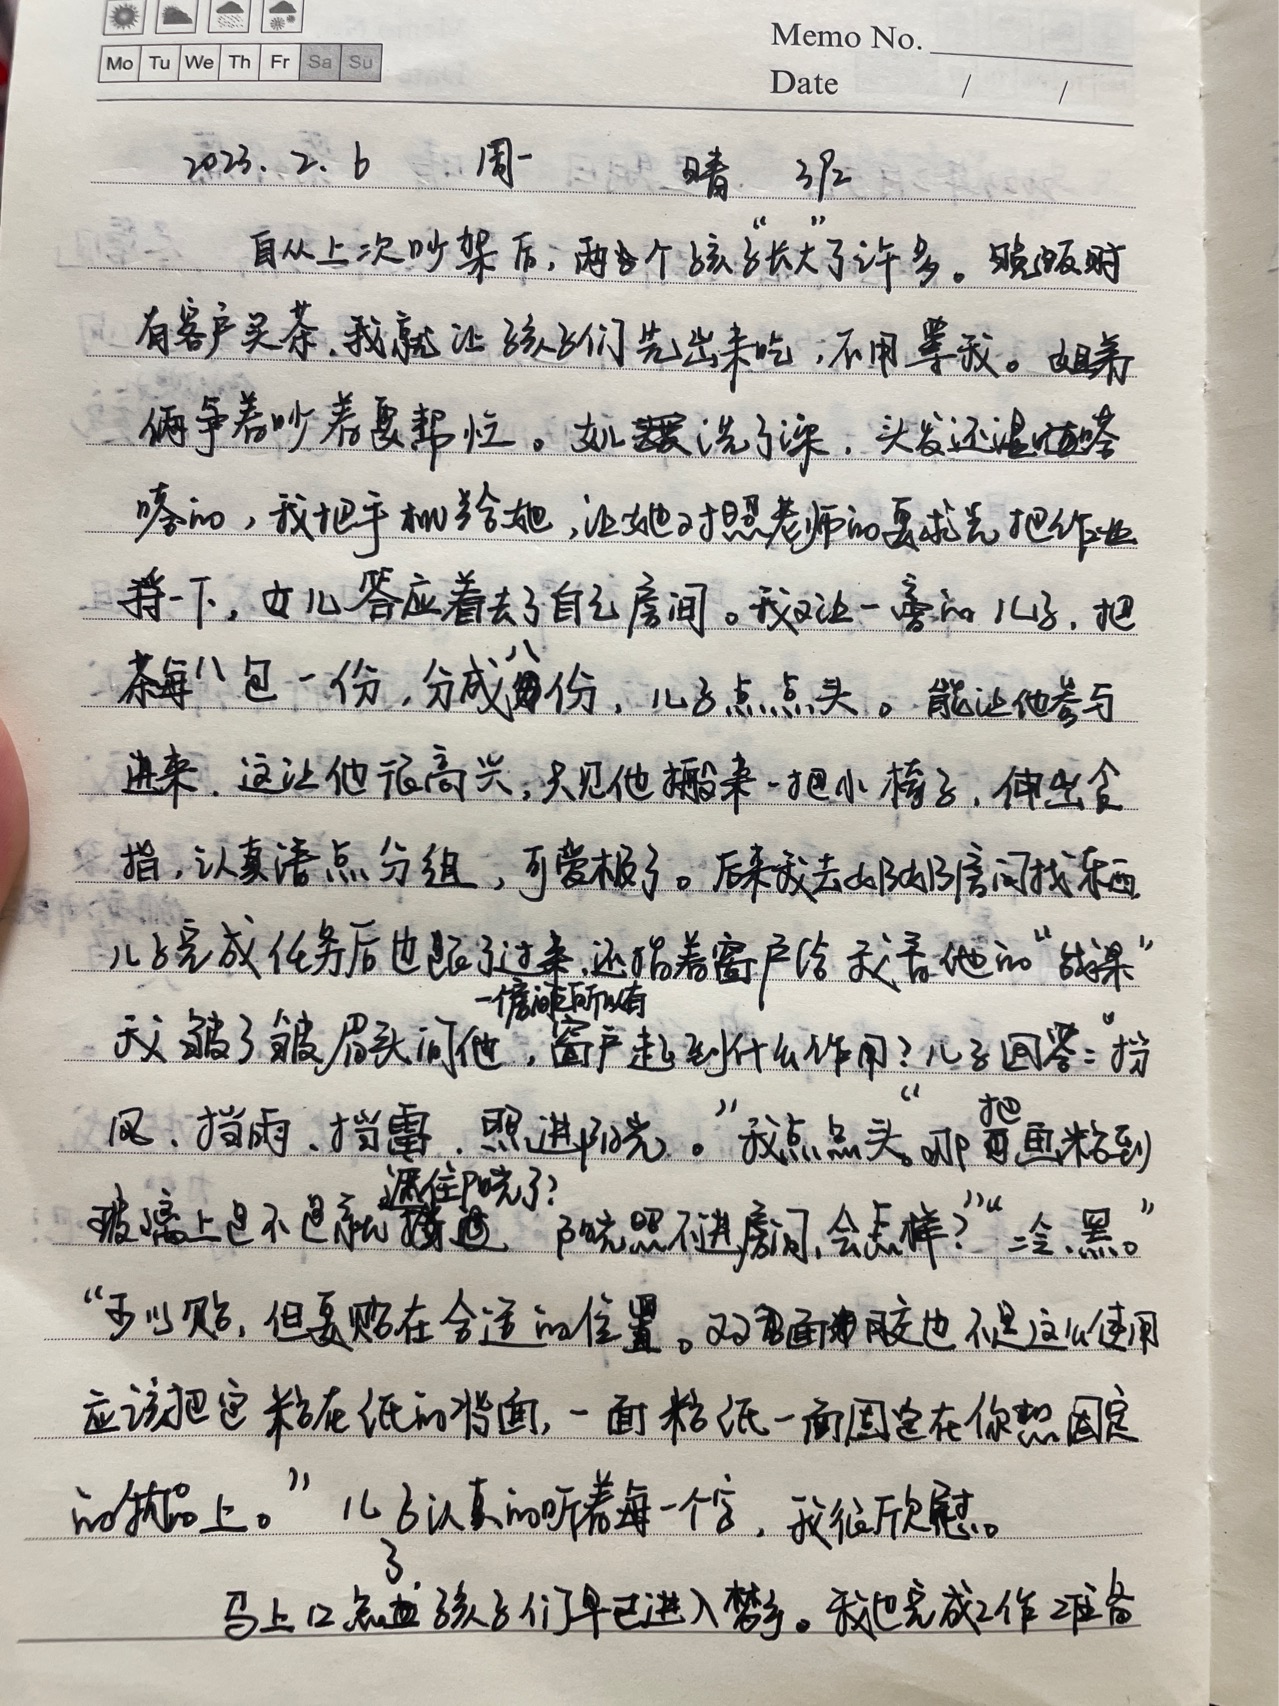 Mo Tu We Th Fr Sa Su
Memo No.
Date / /
2023.2.6 周一 晴 392
自从上次吵架后,两个孩子“长大”了许多。晚饭时
有客户买茶,我就让孩子们先出来吃,不用等我。姐弟
俩争着吵着要帮忙。女儿洗了澡,头发还湿嗒
嗒的,我把手机给她,让她对照老师的要求先把作业
写一下,女儿答应着去了自己房间。我又让一旁的儿子,把
茶每八包一份,分成八份,儿子点点头。能让他参与
进来,这让他很高兴,只见他搬来一把小椅子,伸出食
指,认真清点分组,可爱极了。后来我去奶奶房间找东西
儿子完成任务后也跟了过来,还指着窗户给我看他的“战果”
我皱了皱眉头问他,一个房间所有窗户起到什么作用?儿子回答:“挡
风、挡雨、挡雷、照进阳光。”我点点头。“那把画粘到
玻璃上是不是就遮住阳光了?阳光照不进房间,会怎样?”“冷、黑。”
“可以贴,但要贴在合适的位置。双面胶也不是这么使用
应该把它粘在纸的背面,一面粘纸一面固定在你想固定
的物品上。”儿子认真的听着每一个字,我很欣慰。
马上12点了,孩子们早已进入梦乡。我也完成工作准备